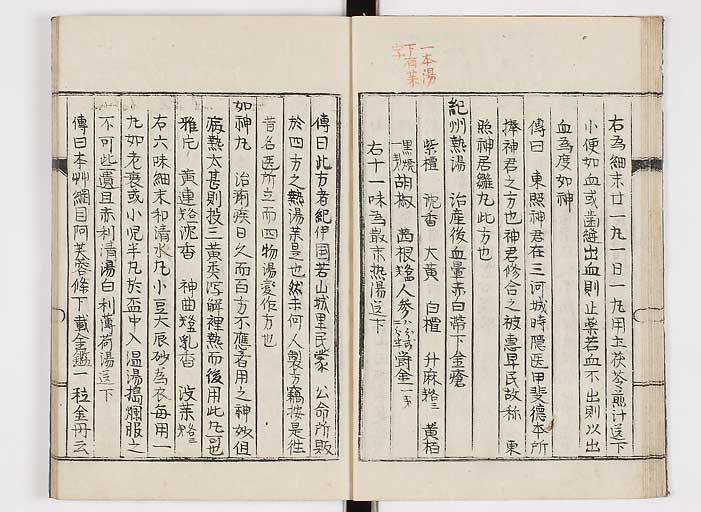 一本湯
下有某
字
右為細末廿一丸一日一丸用土茯苓煎汁送下
小便如血或歯縫出血則止藥若血不出則以出
血為度如神
傳曰 東照神君在三河城時隠医甲斐德本所
捧神君之方也神君修合之被惠早民故称 東
照神君雛丸此方也
紀州熱湯 治産後血暈赤白帶下金瘡
紫檀 沉香 大黄 白檀 升麻 黄栢
黒焼 胡椒 茜根 人参 欝金
右十一味為散末热湯送下
傳曰此方者紀伊国若山城里民蒙 公命所販
於四方之熱湯某是也然未何人製方竊按是往
昔名医所立而四物湯变作方也
如神丸 治痢疾日久而百方不應者用之神妙但
病熱太甚則投三黄 瀉解裡熱而後用此丸可也
雅片 黄連 沉香 神曲 乳香 没薬
右六味細末和清水丸小豆大辰砂為衣每用一
丸如老衰或小児半丸於盃中入温湯搗爛服之
不可些遺且赤利清湯白利薄荷湯送下
傳曰本艸綱目阿芙蓉條下載金鑑一粒金丹云